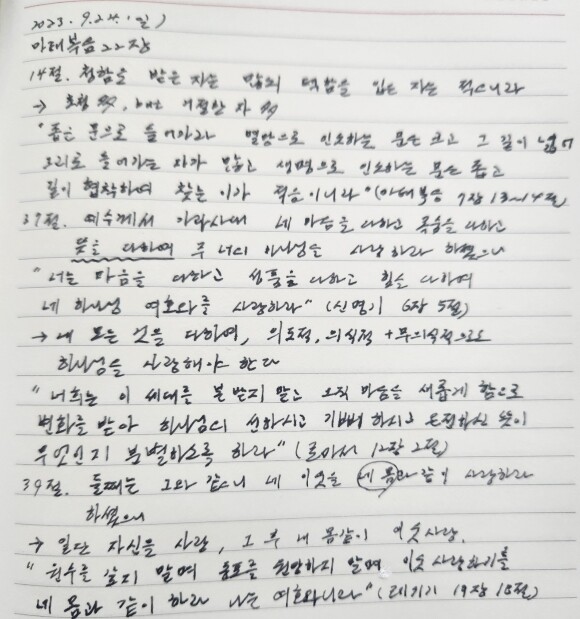 2023. 9. 24. (일)
마태복음 22장
14절. 청함을 받은 자는 많되 택함을 입은 자는 적으니라
→ 초청 多, but 거절한 자 多
"좁은 문으로 들어가라 멸망으로 인도하는 문은 크고 그 길이 넓어
그리로 들어가는 자가 많고 생명으로 인도하는 문은 좁고
길이 협착하여 찾는 이가 적음이니라" (마태복음 7장 13~14절)
37절. 예수께서 가라사대 네 마음을 다하고 목숨을 다하고
뜻을 다하여 주 너의 하나님을 사랑하라 하셨으니
"너는 마음을 다하고 성품을 다하고 힘을 다하여
네 하나님 여호와를 사랑하라" (신명기 6장 5절)
→ 내 모든 것을 다하여, 의도적, 의식적 + 무의식적으로도
하나님을 사랑해야 한다
"너희는 이 세대를 본받지 말고 오직 마음을 새롭게 함으로
변화를 받아 하나님의 선하시고 기뻐하시고 온전하신 뜻이
무엇인지 분별하도록 하라" (로마서 12장 2절)
39절. 둘째는 그와 같으니 네 이웃을 네 몸과 같이 사랑하라
하셨으니
→ 일단 자신을 사랑, 그 후 내 몸같이 이웃사랑.
"원수를 갚지 말며 동포를 원망하지 말며 이웃 사랑하기를
네 몸과 같이 하라 나는 여호와니라" (레위기 19장 18절)